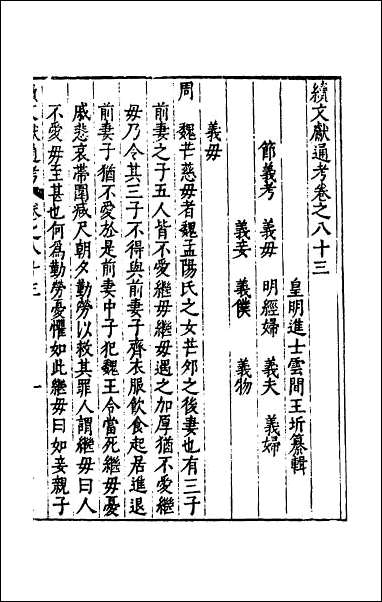 續文獻通考卷之八十三
皇明進士雲間王圻纂輯
節義考 義母 明經婦 義夫 義婦
義妾 義僕 義物
義母
周 魏芒慈母者魏孟陽氏之女芒夘之後妻也有三子
前妻之子五人皆不愛繼母繼母遇之加厚猶不愛繼
母乃令其三子不得與前妻子齊衣服飲食起居進退
前妻子猶不愛於是前妻中子犯魏王令當死繼母憂
戚悲哀帶圍减尺朝夕勤勞以救其罪人謂繼母曰人
不愛母至甚也何為勤勞憂懼如此繼母曰如妾親子
文獻通考 卷之八十三 一